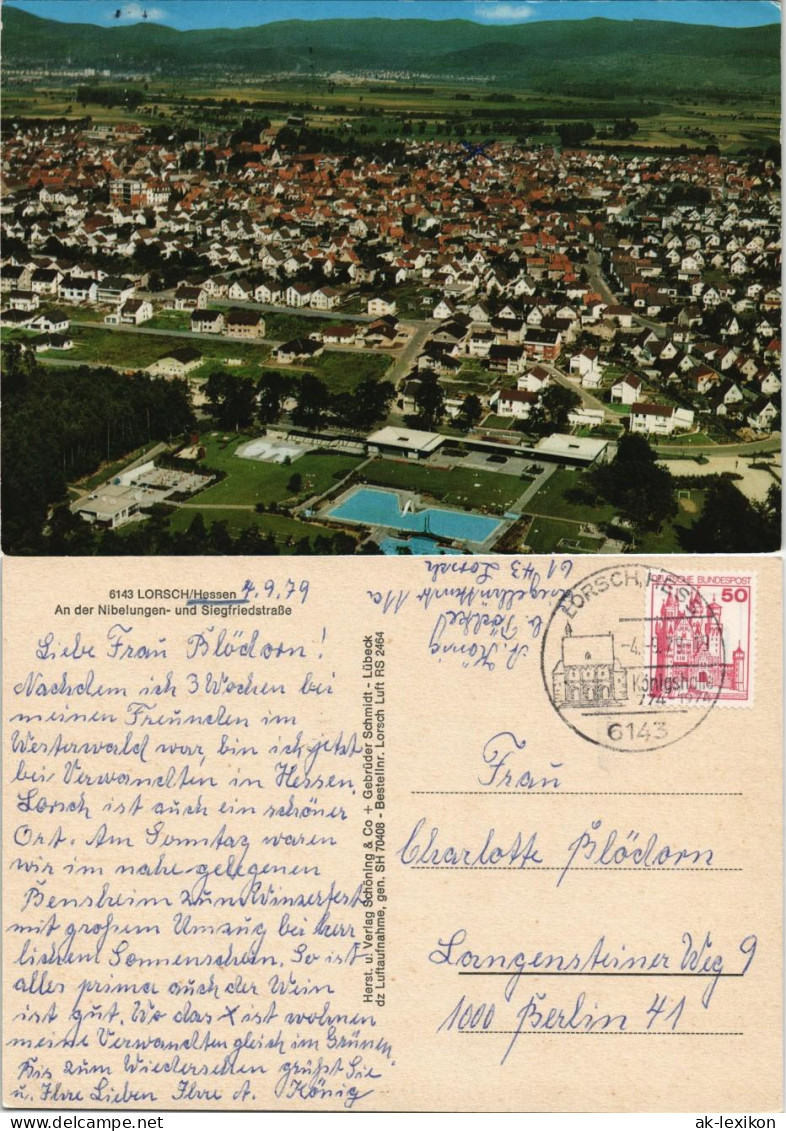 6143 LORSCH/Hessen 4.9.79
An der Nibelungen- und Siegfriedstraße
Liebe Frau Blödorn!
Nachdem ich 3 Wochen bei
meinen Freunden im
Westerwald war, bin ich jetzt
bei Verwandten in Hessen.
Lorsch ist auch ein schöner
Ort. Am Sonntag waren
wir im nahe gelegenen
Bensheim zum Winzerfest
mit großem Umzug bei herr
lichem Sonnenschein. So ist
alles prima auch der Wein
ist gut. Wo das x ist wohnen
meine Verwandten gleich im Grünen
Bis zum Wiedersehen grüßt Sie
u. Ihre Lieben Ihre A. König
Herst. u. Verlag Schöning & Co + Gebrüder Schmidt - Lübeck
dz Luftaufnahme, gen. SH 70408 - Bestellnr. Lorsch Luft RS 2464
A. König
11a
6143 Lorsch
LORSCH, HESS
-4.-9.79-19
Königshalle
774-1974
6143
DEUTSCHE BUNDESPOST
50
Frau
Charlotte Blödorn
Langensteiner Weg 9
1000 Berlin 41
ak-lexikon